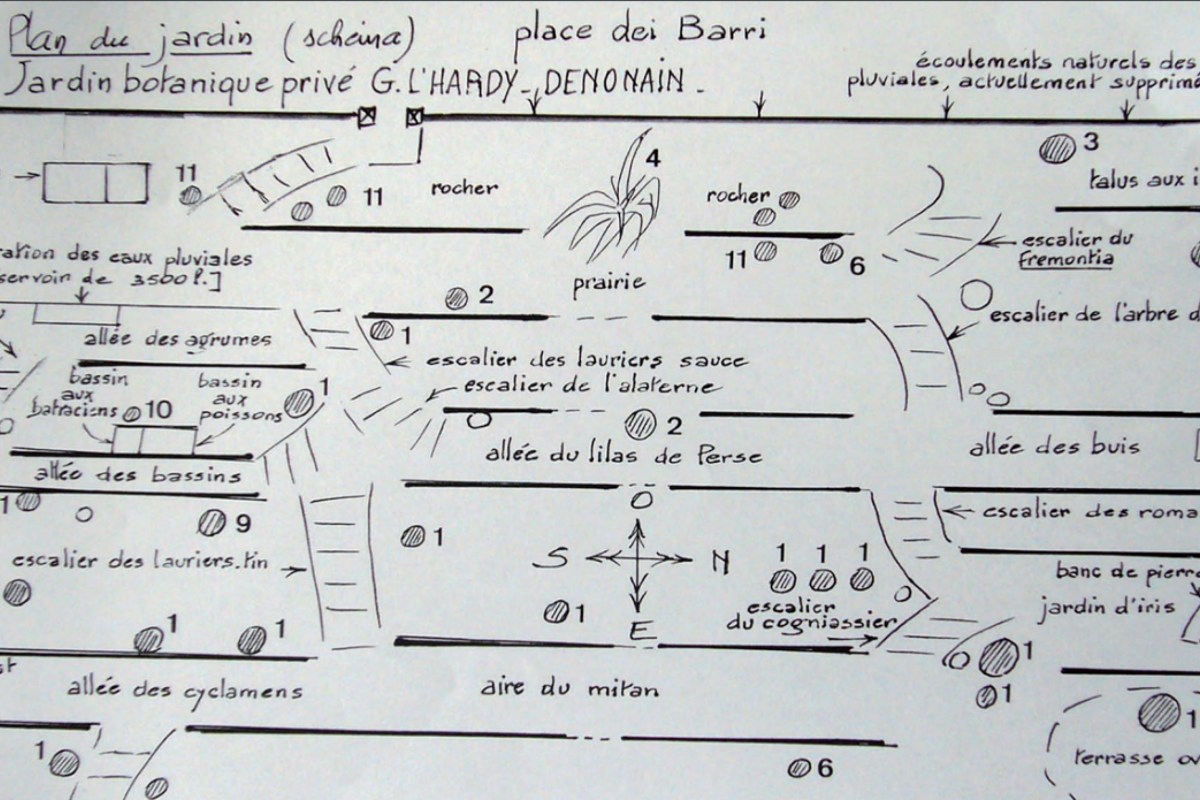 Plan du jardin (schéma)
place dei Barri
Jardin botanique privé G. L'HARDY-DENONAIN.
écoulements naturels des
pluviales, actuellement supprimé
3
talus aux i
11
11
rocher
4
rocher
11
6
escalier du
Fremontia
ration des eaux pluviales
servoir de 3500 l.]
prairie
2
1
escalier de l'arbre d
allée des agrumes
escalier des lauriers sauce
escalier de l'alaterne
bassin
aux
batraciens
10
bassin
aux
poissons
1
2
allée du lilas de Perse
allée des buis
allée des bassins
1
9
1
escalier des roma
O
S
N
E
1 1 1
escalier des lauriers.tin
banc de pierre
jardin d'iris
escalier
du cogniassier
1
1
1
1
1
allée des cyclamens
aire du mitan
1
terrasse ov
1
6